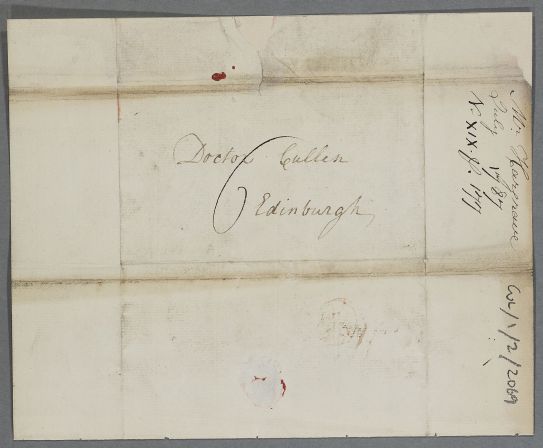 Doctor Cullen
6
Edinburgh
Mr Hargrave
July 1787
N. XIX. p. 177
CUL/1/2/2069